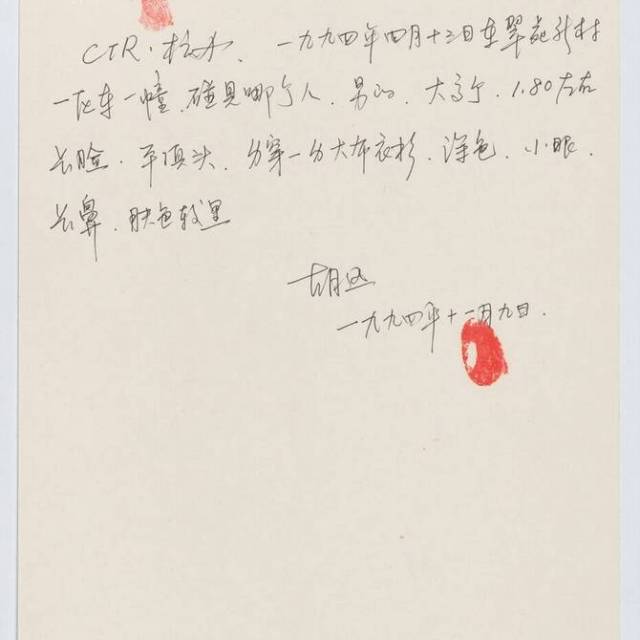 CTR.杭办、一九九四年四月十三日在翠苑新村
一区东一幢.碰见哪个人.男的.大高个.1.80左右
长脸.平顶头.身穿一身大布衣衫.深色.小眼.
长鼻.肤色较黑
一九九四年十一月九日.